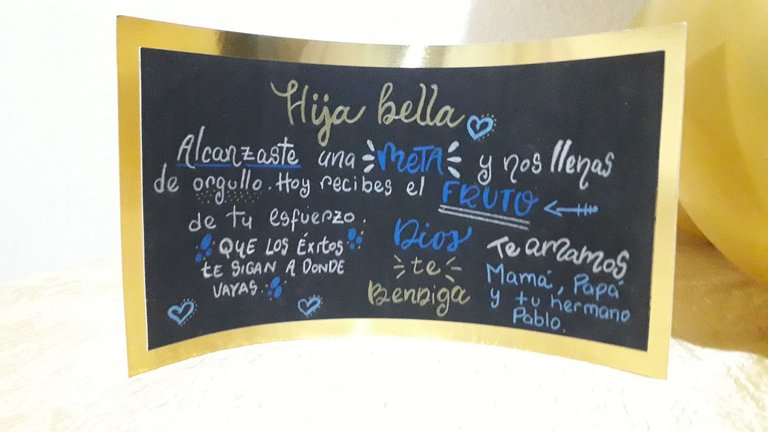 Hija bella
Alcanzaste una META y nos llenas
de orgullo. Hoy recibes el FRUTO
de tu esfuerzo.
QUE LOS ÉXITOS
TE SIGAN A DONDE
VAYAS.
Dios
te
Bendiga
Te amamos
Mamá, Papá
y tu hermano
Pablo.